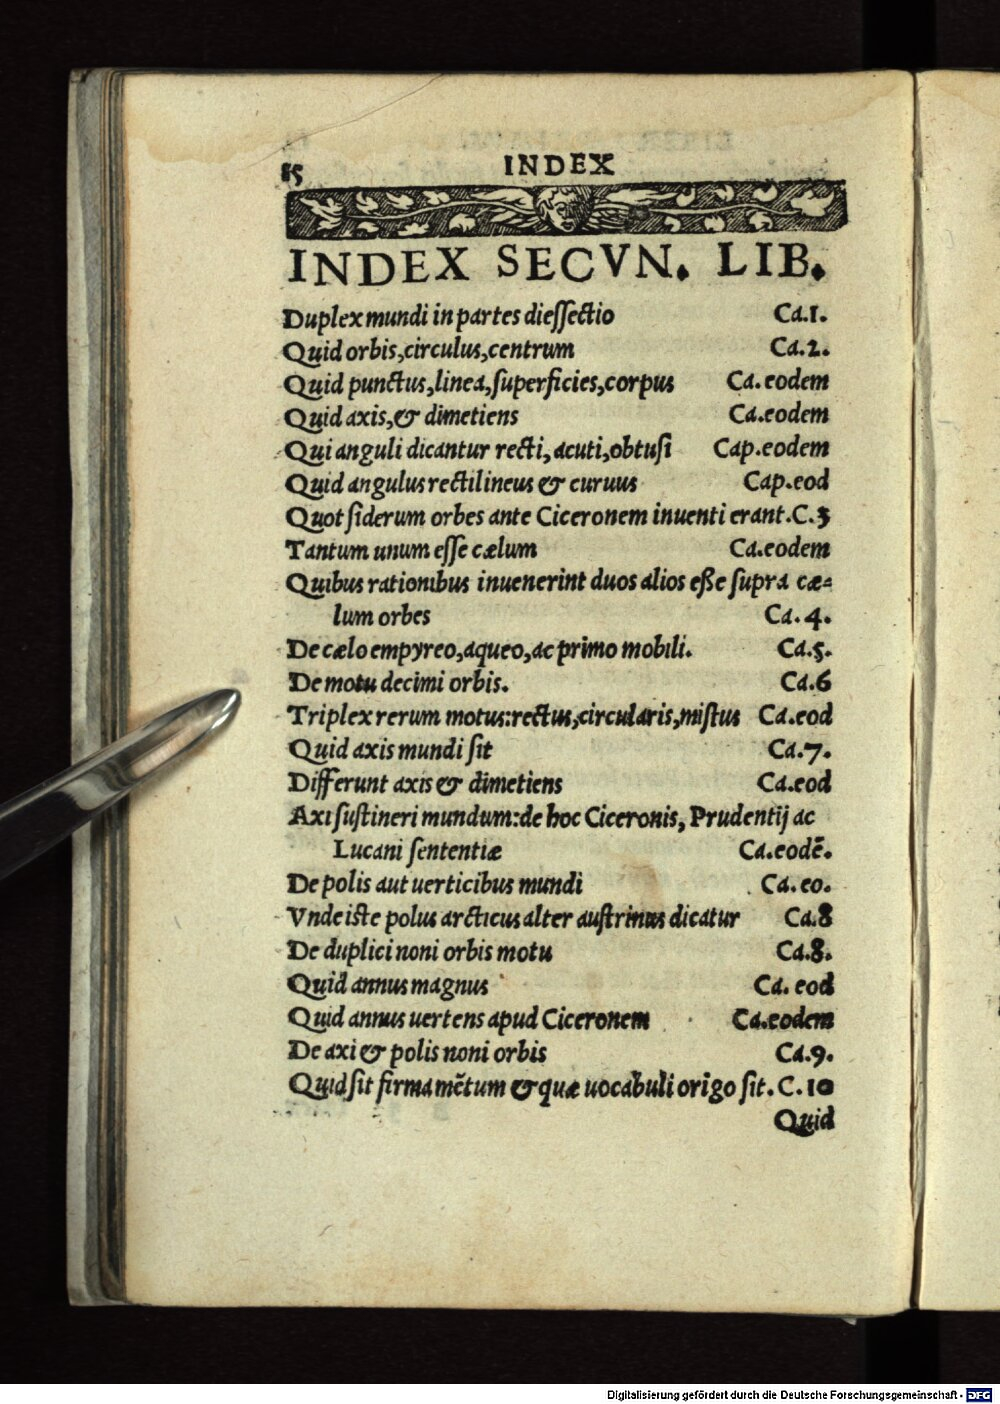 15 INDEX
INDEX SECVN. LIB.
Duplex mundi in partes diessectio Ca.1.
Quid orbis,circulus,centrum Ca.2.
Quid punctus,linea,superficies,corpus Ca.eodem
Quid axis,& dimetiens Ca.eodem
Qui anguli dicantur recti,acuti,obtusi Cap.eodem
Quid angulus rectilineus & curuus Cap.eod
Quot siderum orbes ante Ciceronem inuenti erant.C.3
Tantum unum esse cælum Ca.eodem
Quibus rationibus inuenerint duos alios eße supra cæ=
lum orbes Ca.4.
De cælo empyreo,aqueo,ac primo mobili. Ca.5.
De motu decimi orbis. Ca.6
Triplex rerum motus:rectus,circularis,mistus Ca.eod
Quid axis mundi sit Ca.7.
Differunt axis & dimetiens Ca.eod
Axi sustineri mundum:de hoc Ciceronis, Prudentij ac
Lucani sententiæ Ca.eodẽ.
De polis aut uerticibus mundi Ca.eo.
Vnde iste polus arcticus alter austrinus dicatur Ca.8
De duplici noni orbis motu Ca.8.
Quid annus magnus Ca.eod
Quid annus uertens apud Ciceronem Ca.eodem
De axi & polis noni orbis Ca.9.
Quid sit firmamẽtum & quæ uocabuli origo sit.C.10
Quid
Digitalisierung gefördert durch die Deutsche Forschungsgemeinschaft - DFG